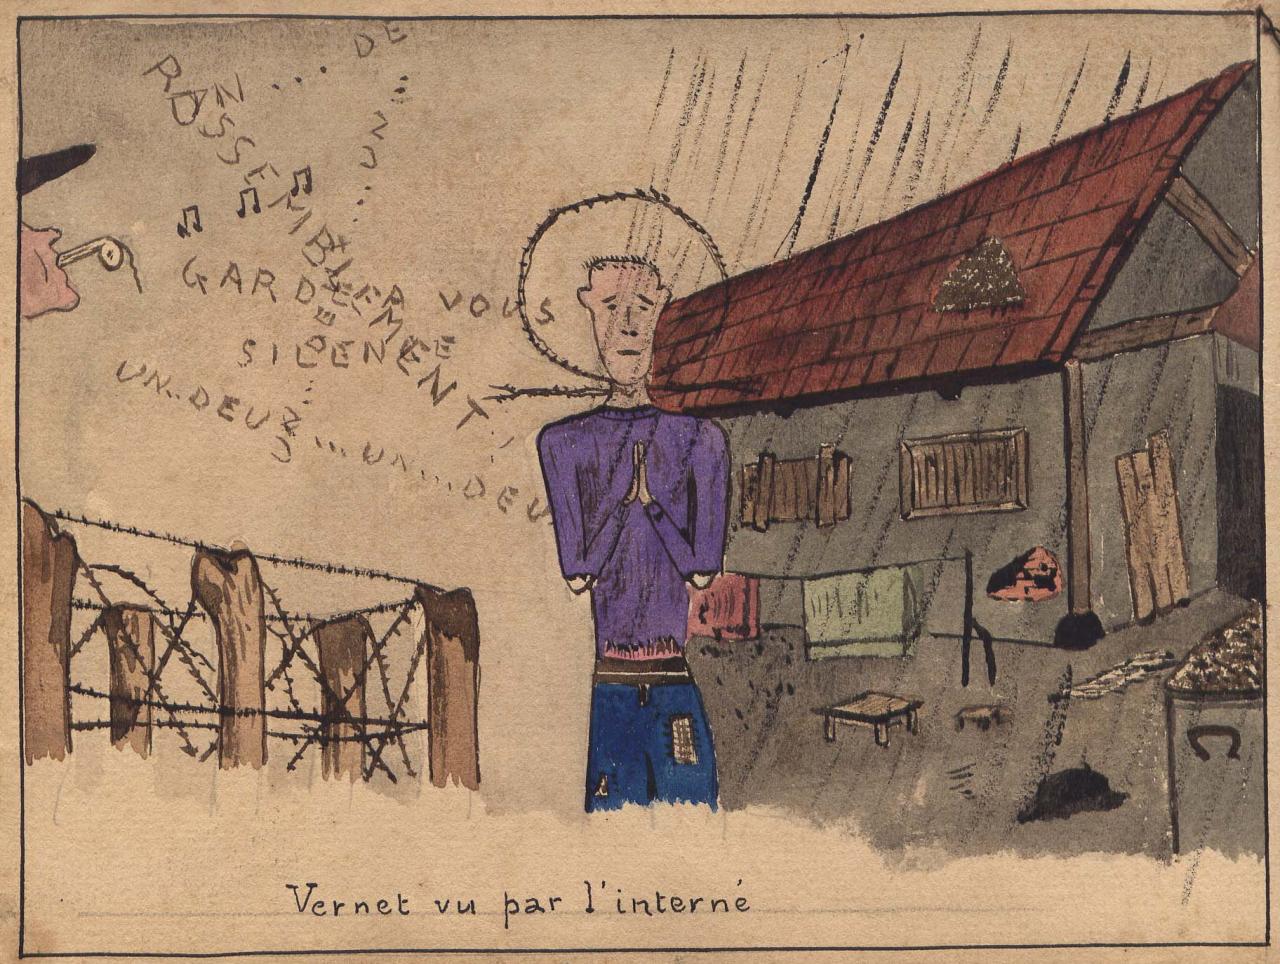 RASSEMBLEMENT
GARDE A VOUS
SILENCE
UN...DEUX...UN...DEU
C
Vernet vu par l'interné